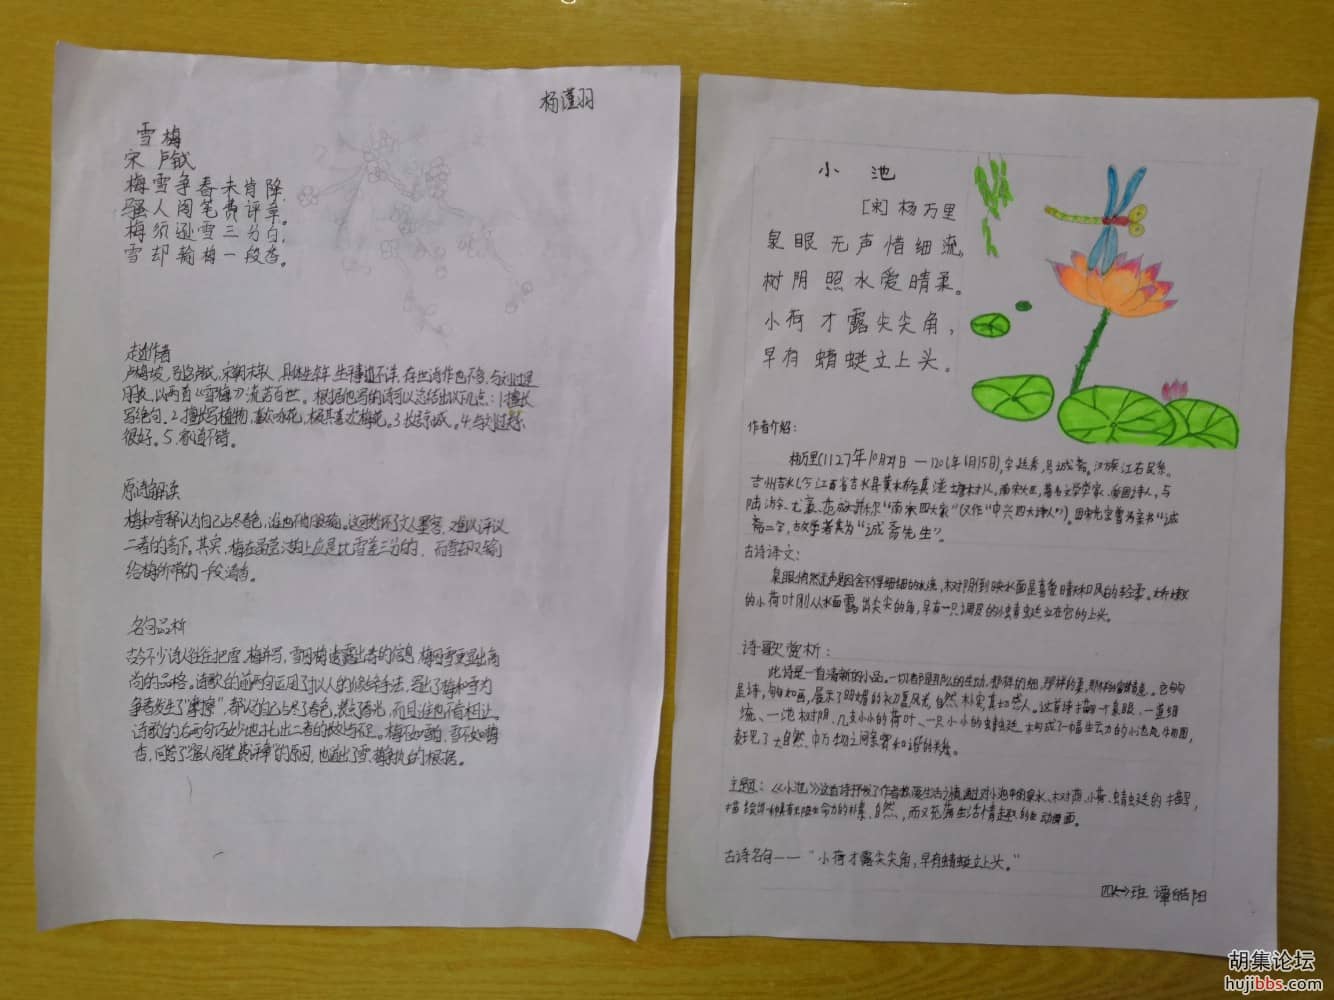 杨瑾羽
雪梅
宋 卢钺
梅雪争春未肯降
骚人阁笔费评章。
梅须逊雪三分白,
雪却输梅一段香。
走近作者
卢梅坡,宋朝末年人,具体生卒年、生平事迹不详,存世诗作也不多,与刘过是
朋友,以两首《雪梅》流芳百世。根据他写的诗可以总结出以下几点:1.擅长
写绝句。2.擅长写植物,喜欢,极其喜欢梅花。3.。4.与刘过关系
很好。5.家道不错。
原诗解读
梅和雪都认为自己占尽春色,谁也不肯服输。这可难坏了文人墨客,难以评议
二者的高下。其实,梅在晶莹洁白上应是比雪差三分的,而雪却又输
给梅所带的一段清香。
名句品析
古今不少诗人往往把雪、梅并写,雪因梅透露出春的信息,梅因雪更显出高
尚的品格。诗歌的前两句运用了拟人的修辞手法,写出了梅和雪为
争春发生了“摩擦”,都认为自己占尽了春色,装点了春光,而且谁也不肯相让。
诗歌的后两句巧妙地托出二者的长处与不足。梅不如雪白,雪不如梅
香,回答了“骚人阁笔费评章”的原因,也道出了雪、梅争执的根据。
小 池
[宋] 杨万里
泉眼无声惜细流,
树阴照水爱晴柔。
小荷才露尖尖角,
早有蜻蜓立上头。
作者介绍:
杨万里(1127年10月29日—1206年6月15日),字廷秀,号诚斋。汉族江右民系。
吉州吉水(今江西省吉水县黄桥镇湴塘村)人,南宋大臣,著名文学家、爱国诗人,与
陆游、尤袤、范成大并称“南宋四大家”(又作“中兴四大诗人”)。因宋光宗曾为亲书“诚
斋”二字,故学者其为“诚斋先生”。
古诗译文:
泉眼悄然无声是因舍不得细细的水流,树阴倒映水面是喜爱晴天和风的轻柔。娇嫩
的小荷叶刚从水面露出尖尖的角,早有一只调皮的小蜻蜓立在它的上头。
诗歌赏析:
此诗是一首清新的小品。一切都是那么的生动,那样的细,那样的柔,那样的富有情意。它句句
是诗,句句如画,展示了明媚的初夏风光,自然朴实,真切感人。这首诗描写一个泉眼、一道细
流、一池树阴、几支小小的荷叶、一只小小的蜻蜓,构成了一幅生动的小池风物图,
表现了大自然中万物之间亲密和谐的关系。
主题:《小池》这首诗抒发了作者热爱生活之情,通过对小池中的泉水、树阴、小荷、蜻蜓的描写,
描绘出一种具有无限生命力的朴素、自然,而又充满生活情趣的生动画面。
古诗名句——“小荷才露尖尖角,早有蜻蜓立上头。”
班 谭皓阳
胡集论坛
hujibbs.com